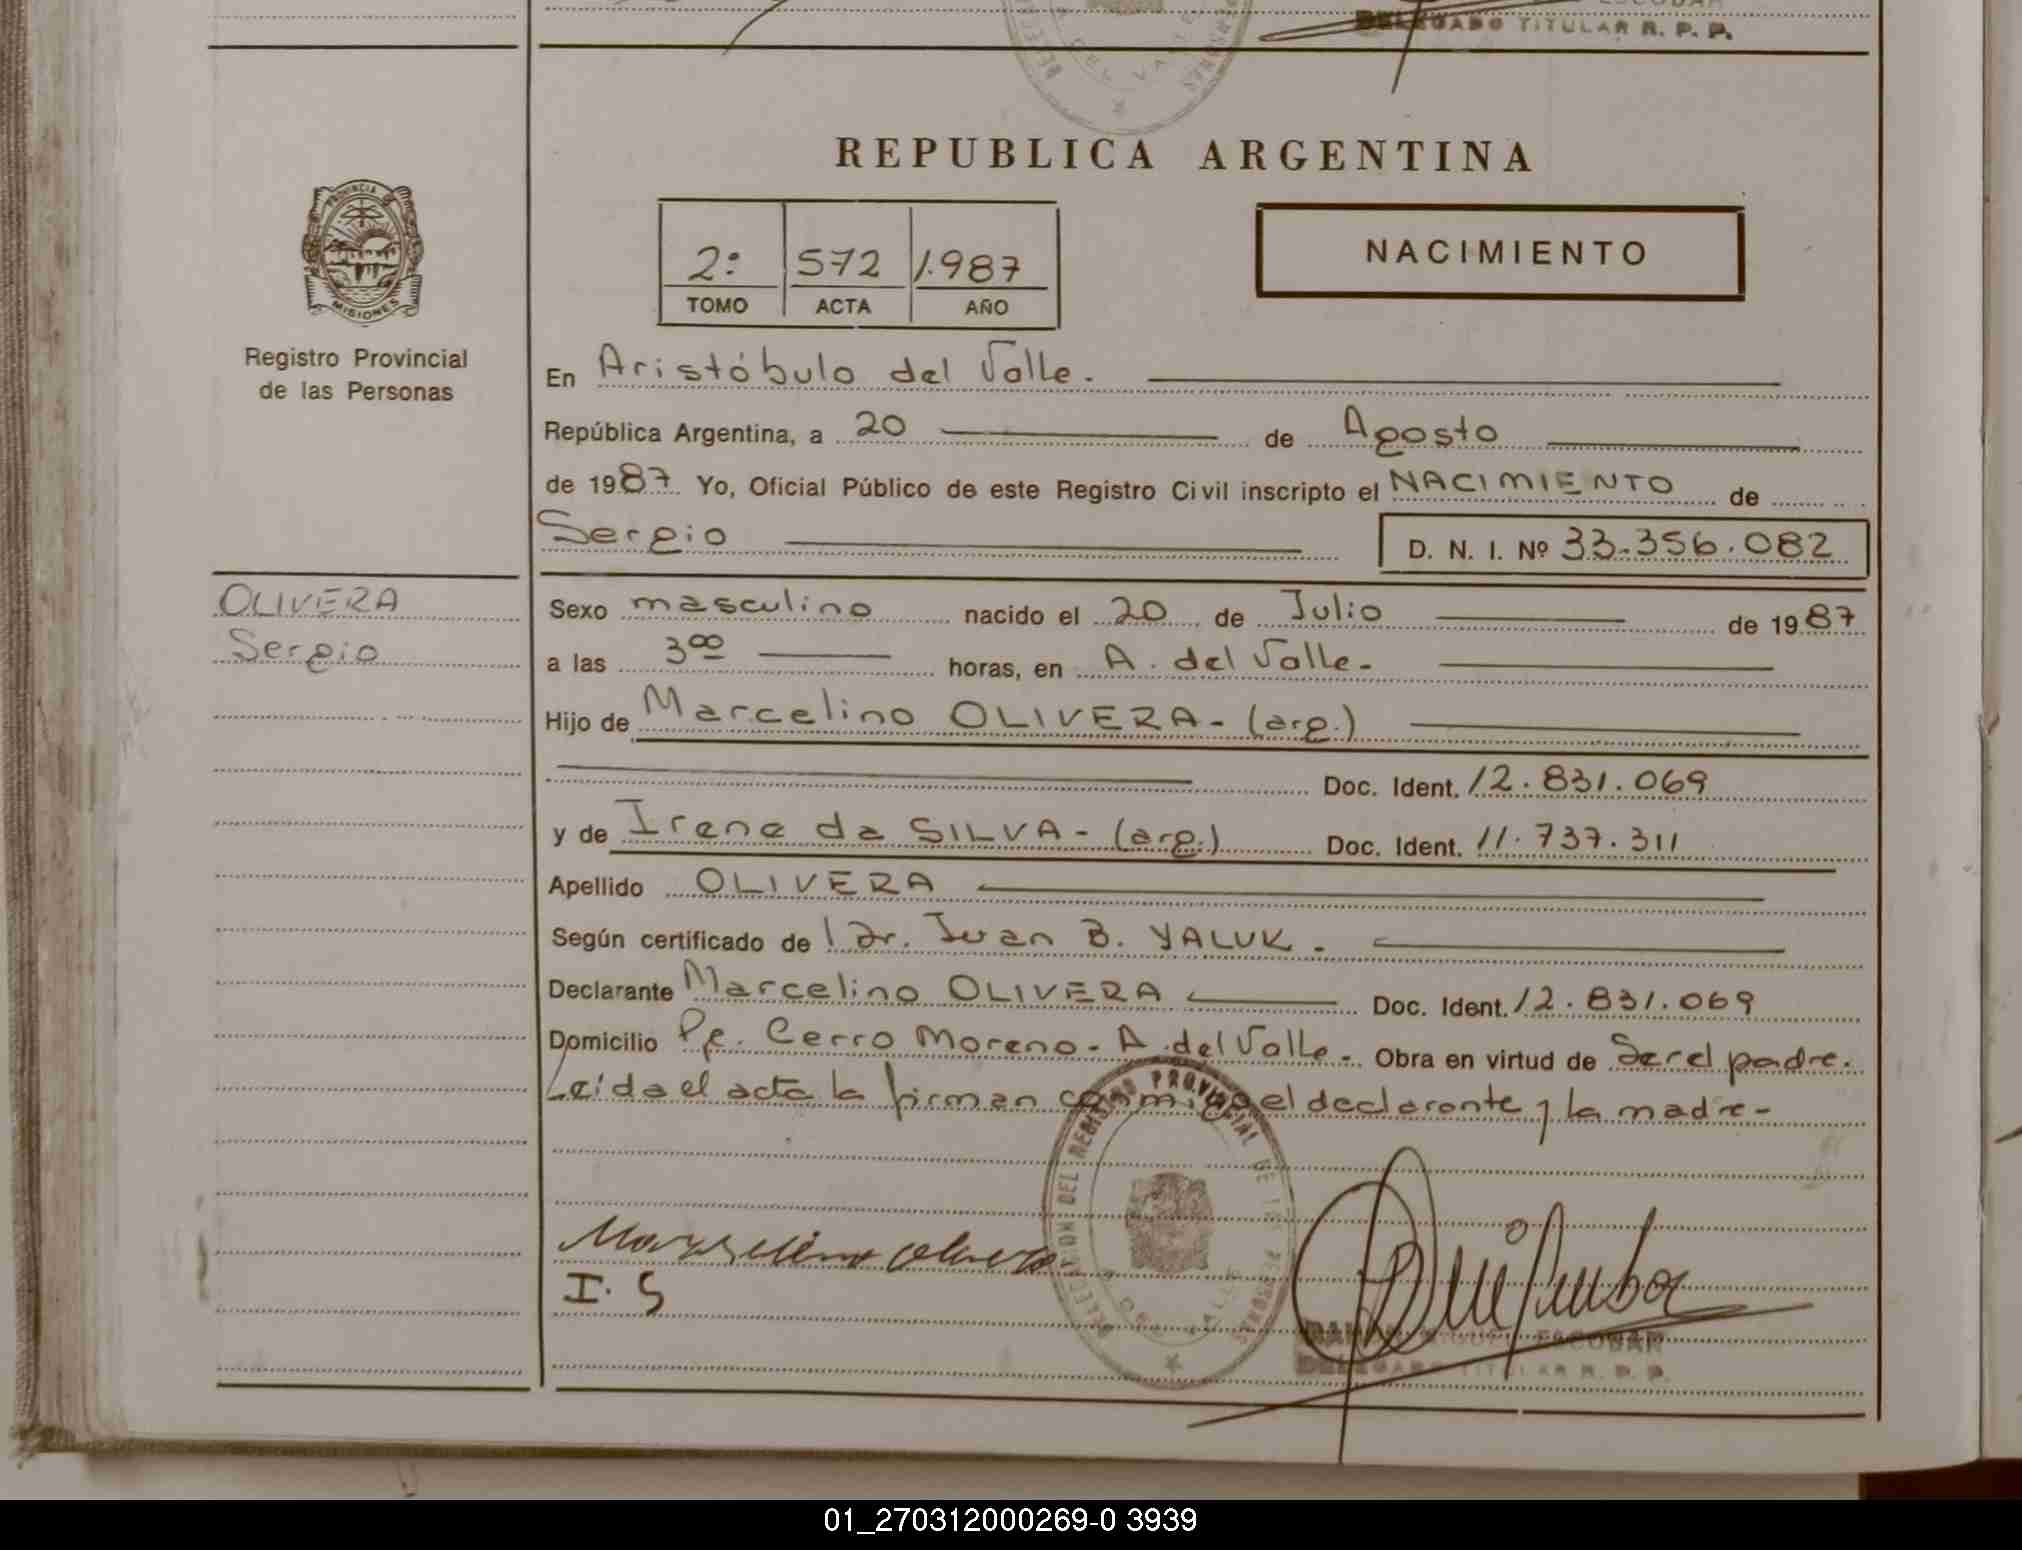 DELEGADO TITULAR R. P. P.
REPUBLICA ARGENTINA
PROVINCIA
MISIONES
Registro Provincial
de las Personas
2º 572 1.987
TOMO ACTA AÑO
NACIMIENTO
En Aristóbulo del Valle.
República Argentina, a 20 de Agosto
de 1987 Yo, Oficial Público de este Registro Civil inscripto el NACIMIENTO de
Sergio D. N. I. Nº 33.356.082
OLIVERA
Sergio
Sexo masculino nacido el 20 de Julio de 1987
a las 300 horas, en A. del Valle.-
Hijo de Marcelino OLIVERA - (arg.)
Doc. Ident. 12.831.069
y de Irene da SILVA - (arg.) Doc. Ident. 11.737.311
Apellido OLIVERA
Según certificado de Dr. Juan B. YALUK.
Declarante Marcelino OLIVERA Doc. Ident. 12.831.069
Domicilio Pje. Cerro Moreno - A. del Valle.- Obra en virtud de Ser el padre.
Leída el acta la firman conmigo el declarante y la madre-
I. S
DELEGACION DEL REGISTRO PROVINCIAL DE LAS PERSONAS
MIGUEL ESCOBAR
DELEGADO TITULAR R. P. P.
01_270312000269-0 3939